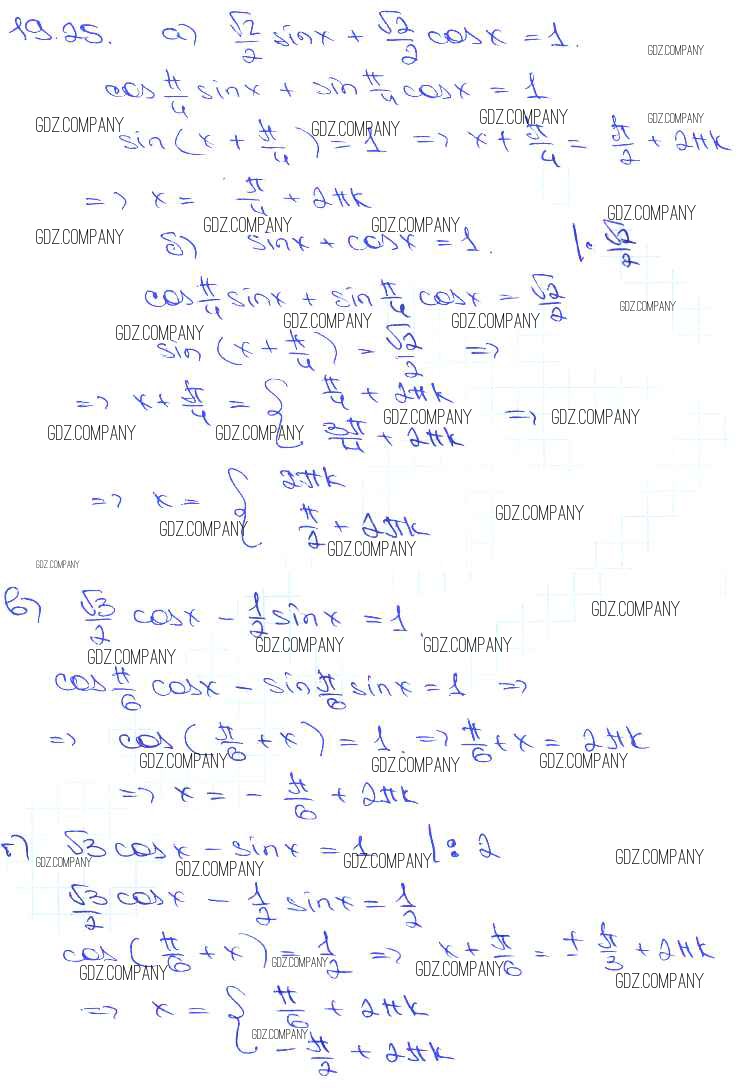 19.25. а) √2/2 sinx + √2/2 cosx = 1.
GDZ.COMPANY
cos π/4 sinx + sin π/4 cosx = 1
GDZ.COMPANY GDZ.COMPANY GDZ.COMPANY GDZ.COMPANY
sin(x + π/4) = 1 => x + π/4 = π/2 + 2πk
=> x = π/4 + 2πk
GDZ.COMPANY GDZ.COMPANY GDZ.COMPANY GDZ.COMPANY
б) sinx + cosx = 1. |: √2/2
cos π/4 sinx + sin π/4 cosx = √2/2
GDZ.COMPANY GDZ.COMPANY GDZ.COMPANY GDZ.COMPANY
sin (x + π/4) = √2/2 =>
=> x + π/4 = { π/4 + 2πk
3π/4 + 2πk =>
GDZ.COMPANY GDZ.COMPANY GDZ.COMPANY GDZ.COMPANY
=> x = { 2πk
π/2 + 2πk
GDZ.COMPANY GDZ.COMPANY GDZ.COMPANY
GDZ.COMPANY
в) √3/2 cosx - 1/2 sinx = 1.
GDZ.COMPANY
GDZ.COMPANY GDZ.COMPANY GDZ.COMPANY
cos π/6 cosx - sin π/6 sinx = 1 =>
=> cos(π/6 + x) = 1. => π/6 + x = 2πk
GDZ.COMPANY GDZ.COMPANY GDZ.COMPANY
=> x = - π/6 + 2πk
г) √3 cosx - sinx = 1 |: 2
GDZ.COMPANY GDZ.COMPANY GDZ.COMPANY GDZ.COMPANY
√3/2 cosx - 1/2 sinx = 1/2
cos(π/6 + x) = 1/2 => x + π/6 = ± π/3 + 2πk
GDZ.COMPANY GDZ.COMPANY GDZ.COMPANY GDZ.COMPANY
=> x = { π/6 + 2πk
- π/2 + 2πk
GDZ.COMPANY